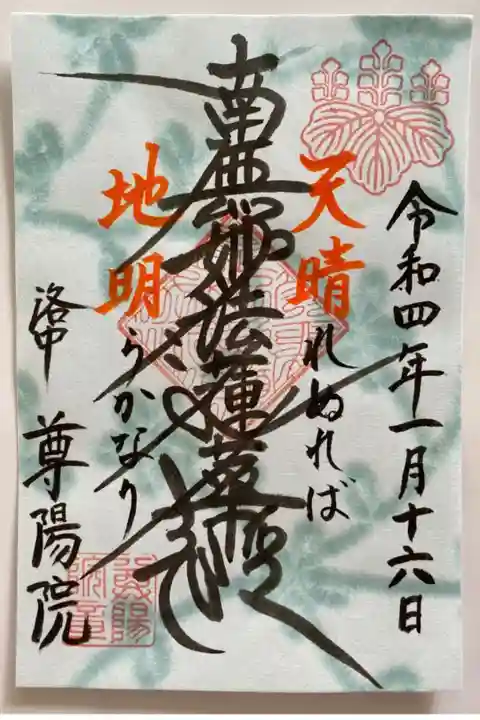 令和四年一月十六日
天晴れぬれば
南無妙法蓮華経
地明らかなり
洛中 尊陽院